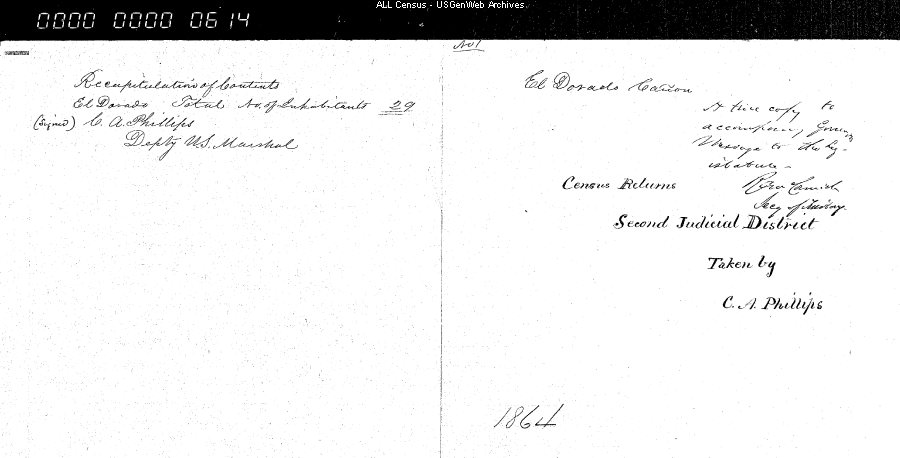 ALL Census - USGenWeb Archives
0000 0000 0614
Recapitulation of Contents
El Dorado Total No. of Inhabitants 29
(Signed) C. A. Phillips
Depty U.S. Marshal
No 1
El Dorado Cañon
A true copy to
accompany Governors
Message to the Leg-
islature -
Secy of Territory
Census Returns
Second Judicial District
Taken by
C. A. Phillips
1864